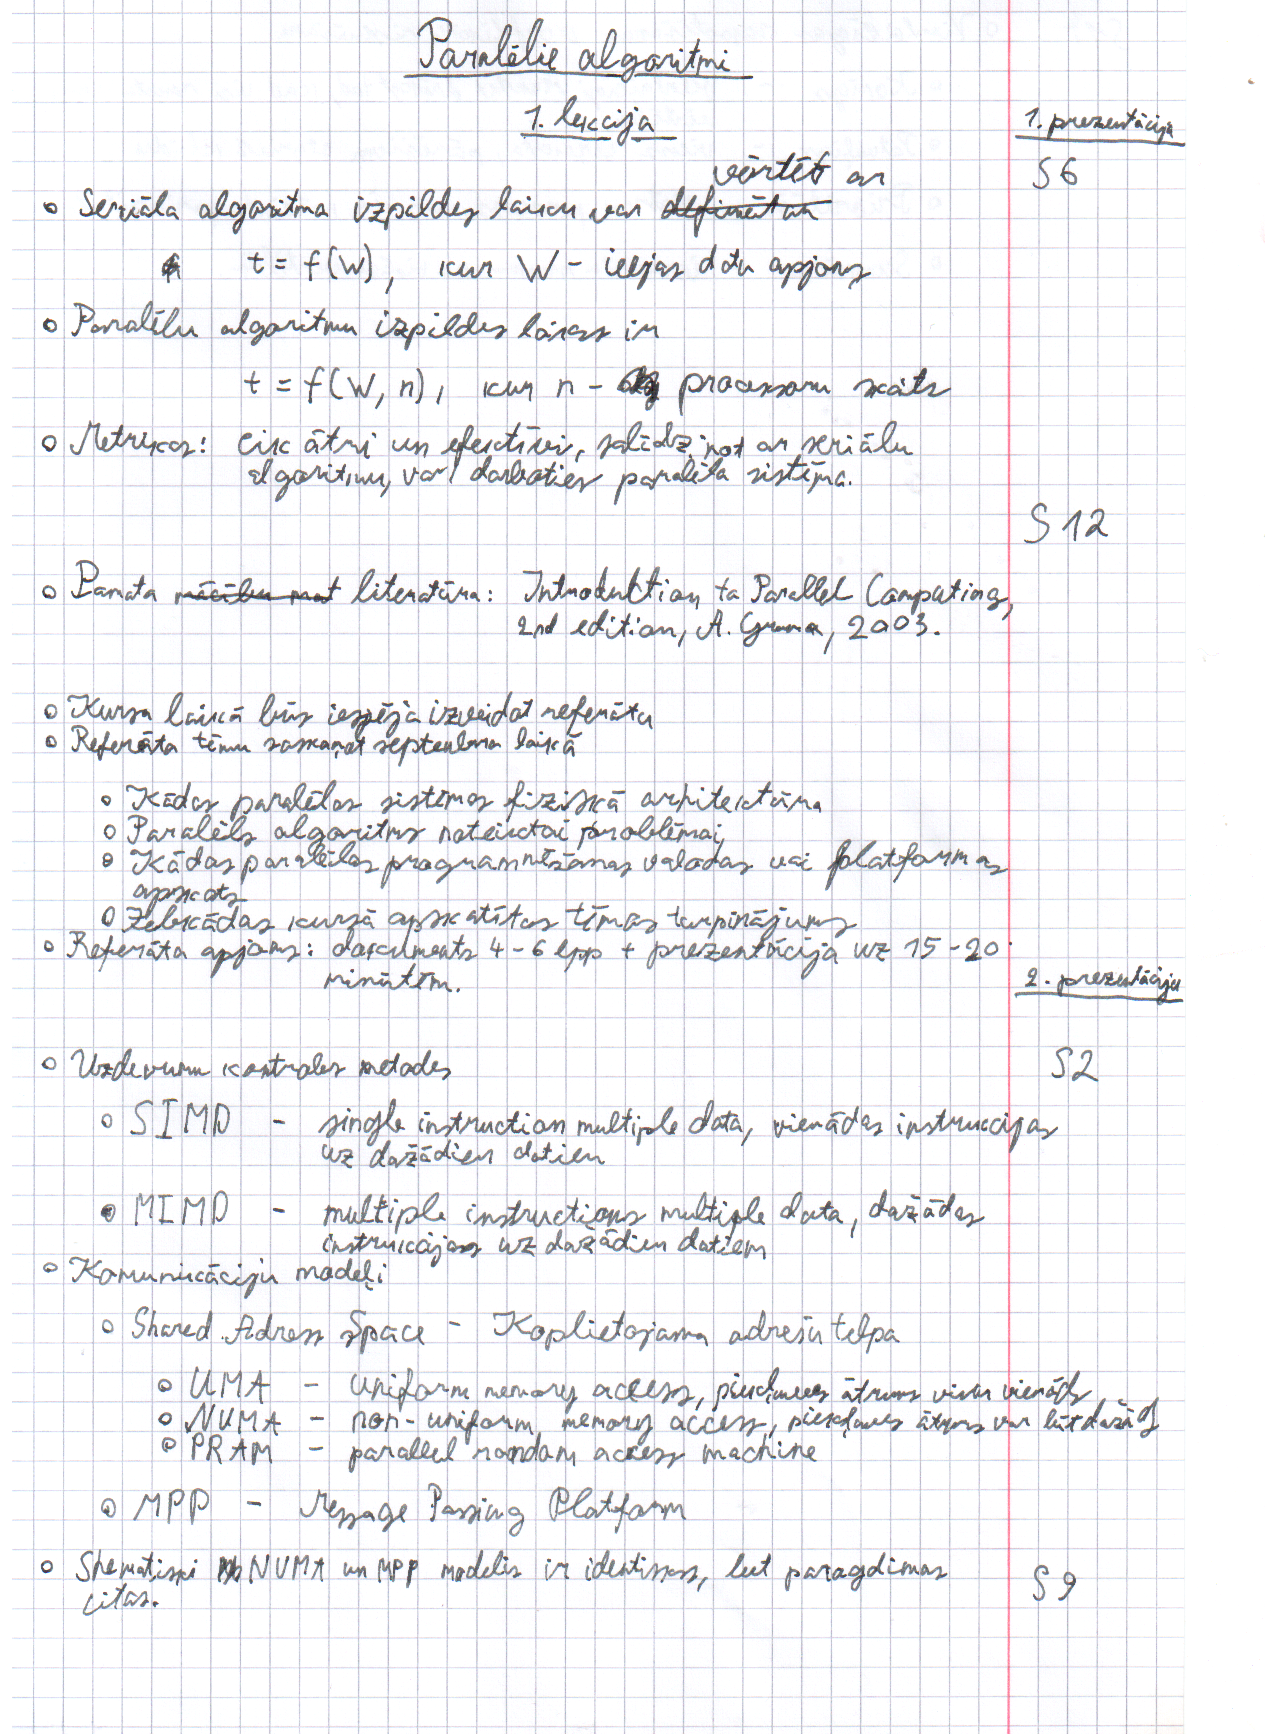 Paralēlie algoritmi
1. lekcija
1. prezentācija
S6
vērtēt ar
○ Seriāla algoritma izpildes laiku var definēt ar
t = f(W), kur W - ieejas datu apjoms
○ Paralēlu algoritmu izpildes laiks ir
t = f(W, n), kur n - procesoru skaits
○ Metrikas: cik ātri un efektīvi, salīdzinot ar seriālu
algoritmu, var darboties paralēla sistēma.
S12
○ Pamata mācību mat literatūra: Introduktion to Parallel Computing,
2nd edition, A. Grama, 2003.
○ Kursa laikā būs iespēja izveidot referātu
○ Referāta tēmu saskaņot septembra laikā
○ Kādas paralēlas sistēmas fiziskā arhitektūra
○ Paralēls algoritms noteiktai problēmai
○ Kādas paralēlas programmēšanas valodas vai platformas
apskats
○ Jebkādas kursā apskatītas tēmas turpinājums
○ Referāta apjoms: dokuments 4-6 lpp + prezentācija uz 15-20
minūtēm.
2. prezentācija
S2
○ Uzdevumu kontroles metodes
○ SIMD - single instruction multiple data, vienādas instrukcijas
uz dažādiem datiem
○ MIMD - multiple instructions multiple data, dažādas
instrukcijas uz dažādiem datiem
○ Komunikāciju modeļi
○ Shared Adress Space - Koplietojama adrešu telpa
○ UMA - uniform memory access, piekļuves ātrums visur vienāds
○ NUMA - non-uniform memory access, piekļuves ātrums var būt dažāds
○ PRAM - parallel random access machine
○ MPP - Message Passing Platform
○ Shematiski NUMA un MPP modelis ir identisks, bet paragdimas
citas.
S9